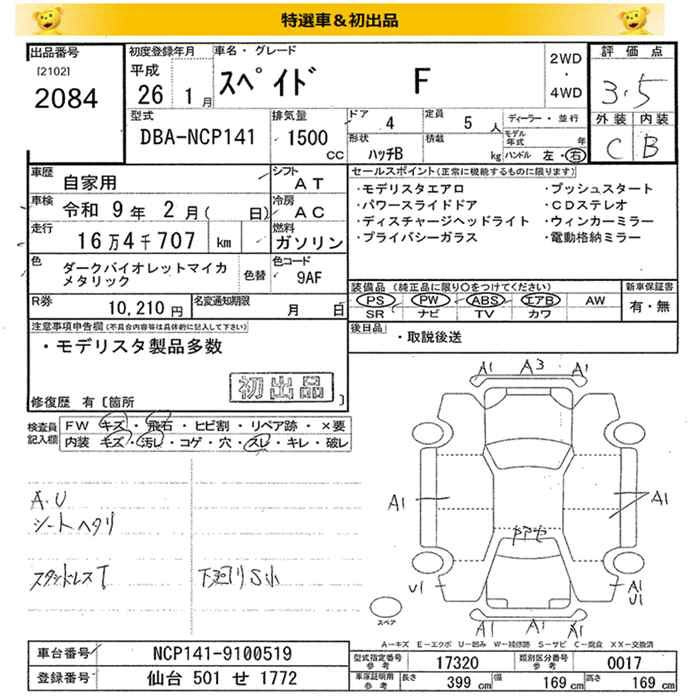 特選車＆初出品
出品番号
[2102]
2084
初度登録年月
平成
26 1月
車名・グレード
スペイド F
2WD
・
4WD
評価点
3.5
外装 内装
C B
型式
DBA-NCP141
排気量
1500
cc
ドア
4
定員
5 人
形状
ハッチB
積載
kg
ディーラー・並行
モデル年式 年
ハンドル 左・右
車歴
自家用
シフト
AT
車検
令和 9年 2月( 日)
冷房
AC
走行
16万4千707 km
燃料
ガソリン
色
ダークバイオレットマイカ
メタリック
色替
色コード
9AF
R券
10,210円
名変通知期限
月 日
セールスポイント(正常に機能するものに限ります)
・モデリスタエアロ
・パワースライドドア
・ディスチャージヘッドライト
・プライバシーガラス
・プッシュスタート
・CDステレオ
・ウィンカーミラー
・電動格納ミラー
装備品 (純正品に限り○をつけてください)
PS PW ABS エアB AW
SR ナビ TV カワ
新車保証書
有・無
後日品
・取説後送
注意事項申告欄(不具合内容等は具体的に記入して下さい)
・モデリスタ製品多数
初出品
修復歴 有〔箇所 〕
検査員
記入欄
FW キズ・飛石・ヒビ割・リペア跡・×要
内装 キズ・汚レ・コゲ・穴・スレ・キレ・破レ
A.U
シートヘタリ
スタッドレスT
下廻りS小
A1 A3 A1
A1
A1
U1
A1
U1
A1 A1 A1
スペア
A－キズ E－エクボ U－凹み W－補修跡 S－サビ C－腐食 XX－交換済
車台番号
NCP141-9100519
登録番号
仙台 501 せ 1772
型式指定番号
参考
17320
類別区分番号
参考
0017
車庫証明用
参考
長さ
399 cm
幅
169 cm
高さ
169 cm